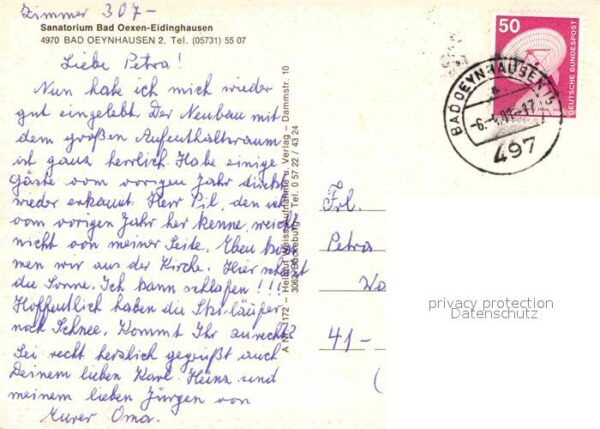 Zimmer 307-
Sanatorium Bad Oexen-Eidinghausen
4970 BAD OEYNHAUSEN 2. Tel. (05731) 55 07
Liebe Petra!
Nun habe ich mich wieder
gut eingelebt. Der Neubau mit
dem großen Aufenthaltsraum
ist ganz herrlich. Habe einige
Gäste vom vorigen Jahr direkt
wieder erkannt. Herr Pil, den ich
vom vorigen Jahr her kenne, weicht
nicht von meiner Seite. Eben kom
men wir aus der Kirche. Hier scheint
die Sonne. Ich kann schlafen!!!
Hoffentlich haben die Skiläufer
noch Schnee. Kommt Ihr zurecht?
Sei recht herzlich gegrüßt auch
Deinem lieben Karl-Heinz und
meinem lieben Jürgen von
Eurer Oma.
172 — Helmut Weiss Aufnahme u. Verlag – Dammstr. 10
3062 Bückeburg Tel. 0 57 22 / 43 24
50
DEUTSCHE BUNDESPOST
BAD OEYNHAUSEN
497
Frl.
Petra
Wo
41-
privacy protection
Datenschutz